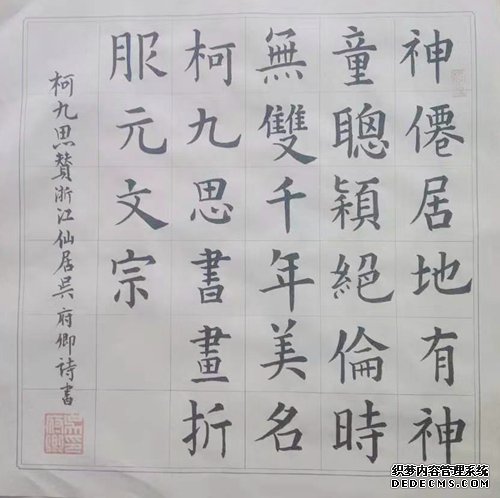 神僊居地有神
童聰穎絕倫時
無雙千年美名
柯九思書畫折
服元文宗
柯九思贊浙江仙居吳府卿詩書
织梦内容管理系统
DEDECMS.COM